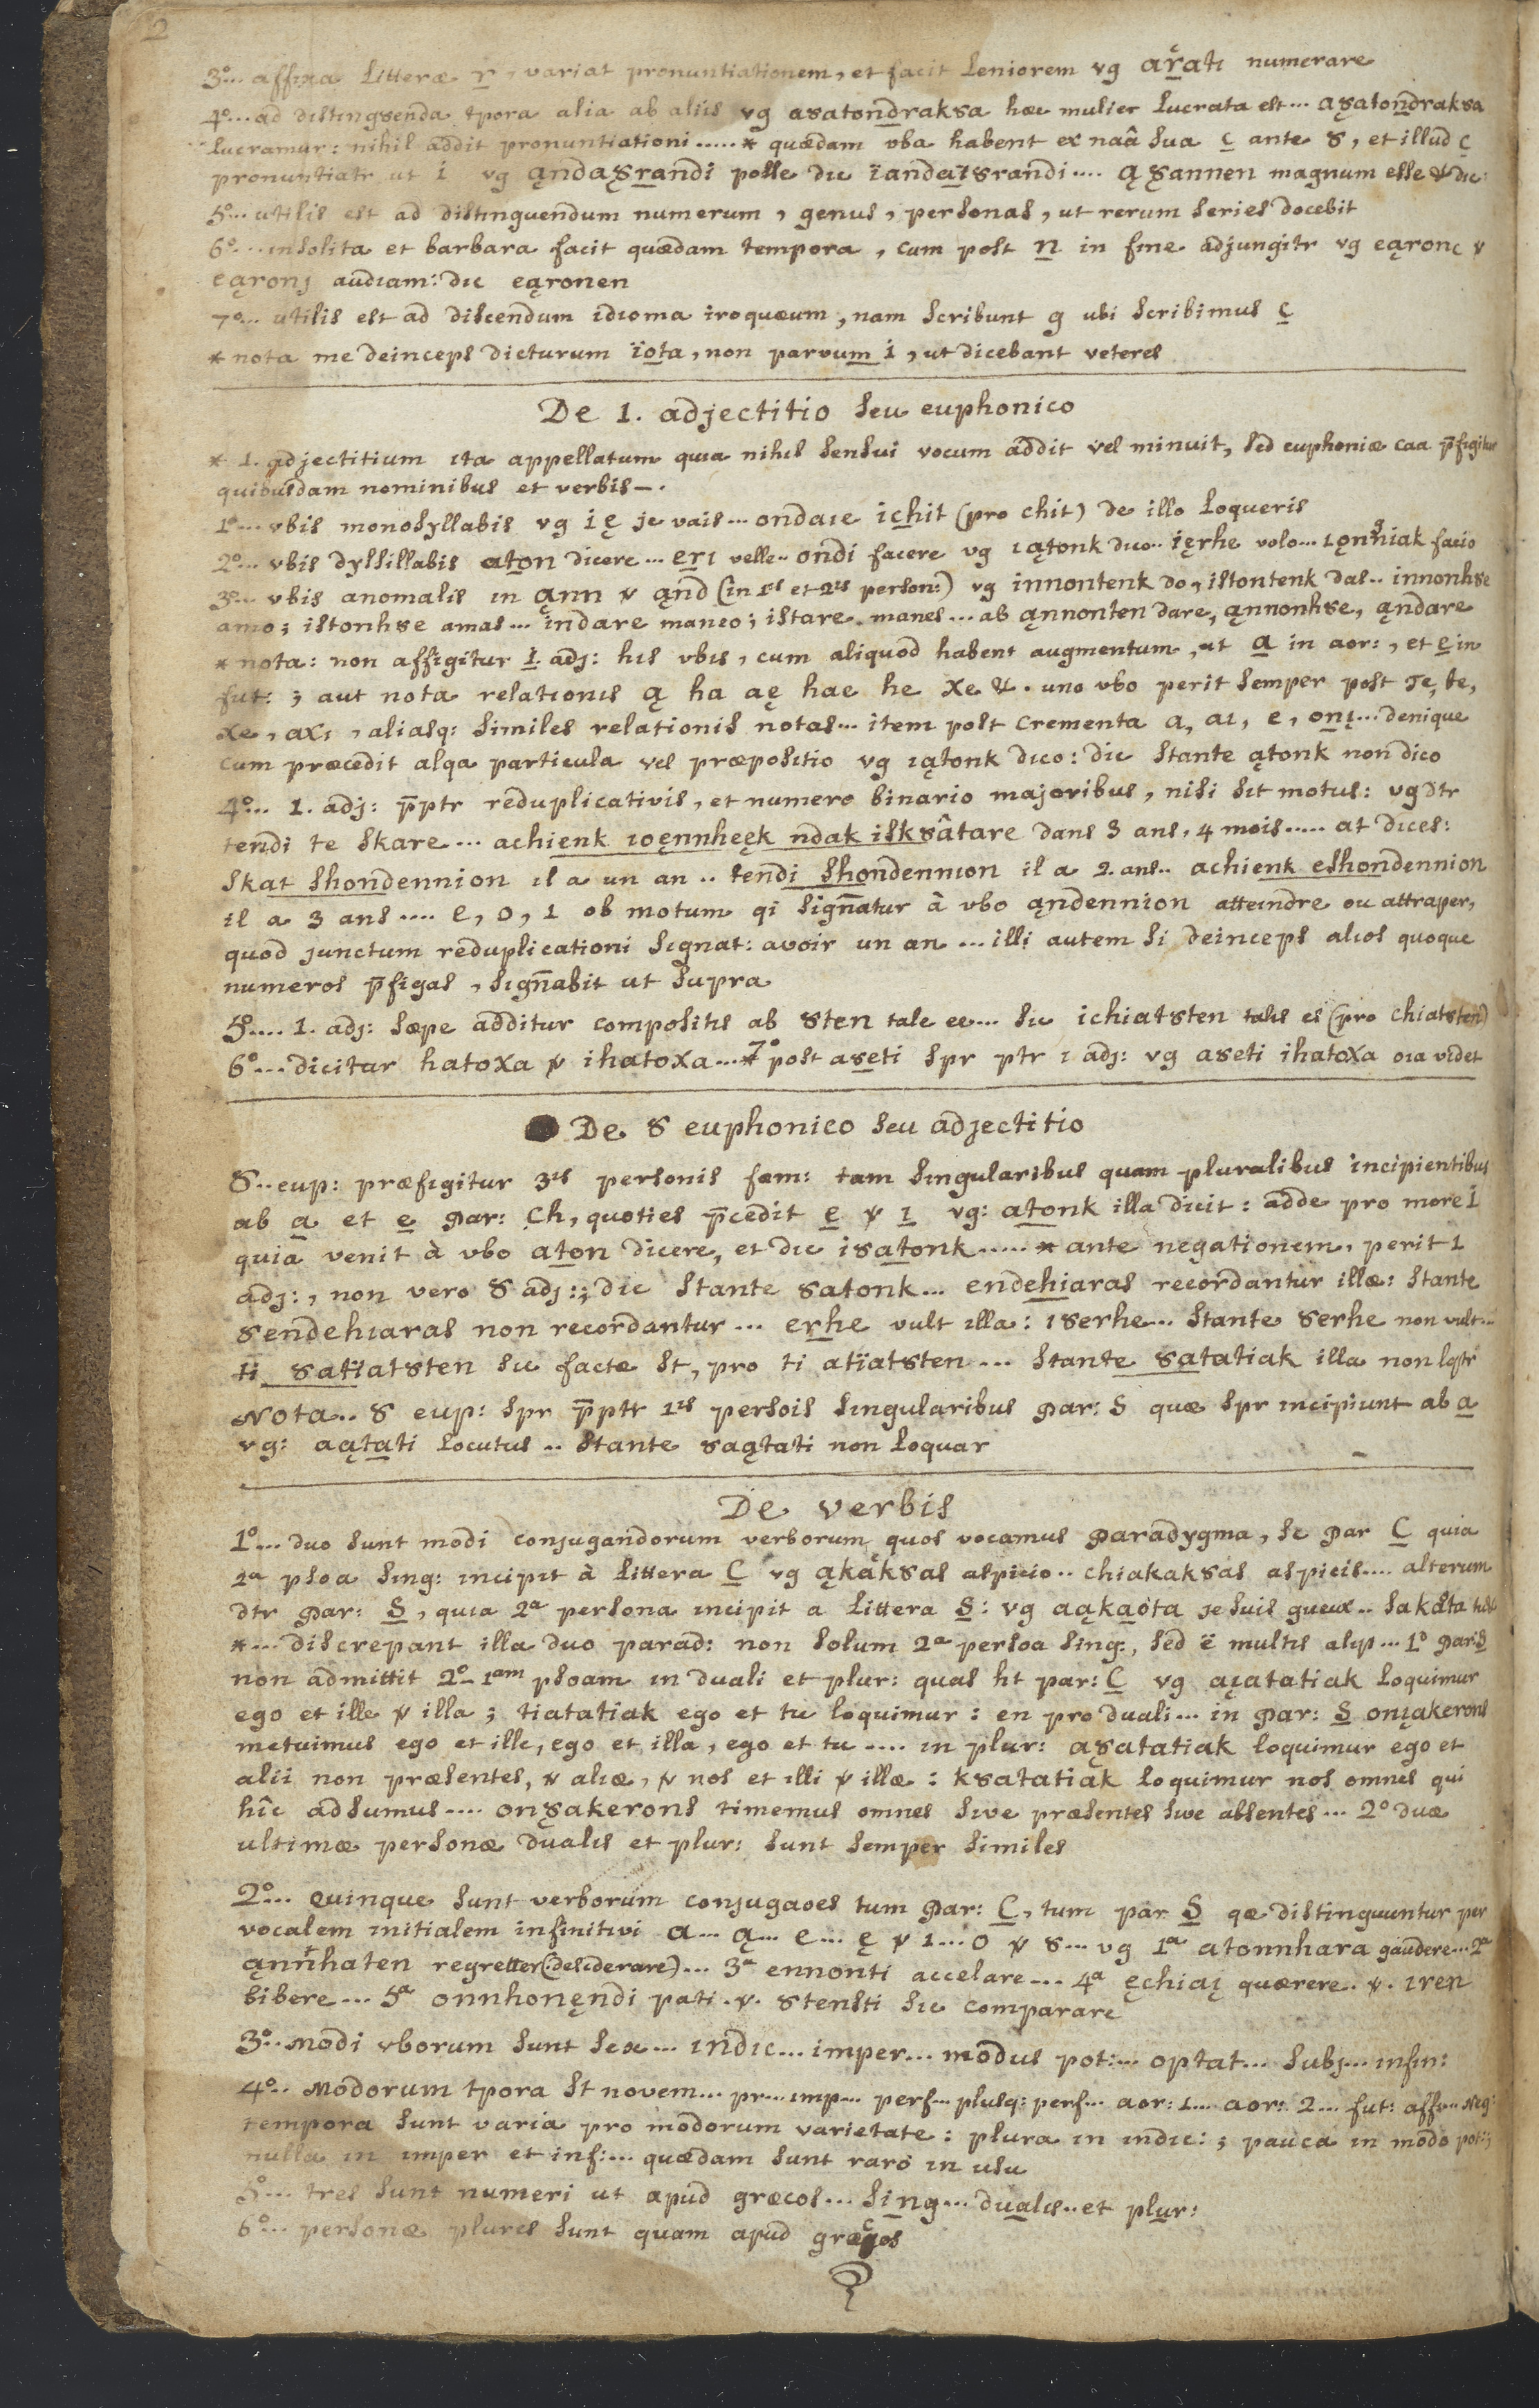 2
3°... affixa litteræ r, variat pronuntiationem, et facit leniorem vg aratı numerare
4°... ad distingȣenda tpora alia ab aliis vg asatondraksa hæc mulier lucrata est... ąsatondraksa
lucramur: nihil addit pronuntiationi..... * quædam vba habent ex naâ sua ç ante 8, et illud ç
pronuntiatr ut i vg ąndaȣrandi posse dic ïandaıȣrandi.... ąȣannen magnum esse dic:
5°... utilis est ad distinguendum numerum, genus, personas, ut rerum series docebit
6°... insolita et barbara facit quædam tempora, cum post n in fine adjungitr vg eąronç v
eąronȷ audıam: dıc eąronen
7°... utilis est ad discendum idıoma iroquæum, nam scribunt g ubi scribimus ç
* nota me deinceps dicturum ïota, non parvum i, ut dicebant veteres
De 1. adjectitio seu euphonico
* 1. adjectitium ıta appellatum quıa nihil sensui vocum addit vel minuit, sed euphoniæ caa p̄figitur
quibusdam nominibus et verbis-.
1°... vbis monosyllabis vg i ę je vais... ondaıe ichit (pro chit) de illo loqueris
2°... vbis dyssillabis aton dicere... erı velle.. ondi facere vg ıątonk dıco.. ięrhe volo... ıǫnniak facio
3°... vbis anomalis ın ąnn v ąnd (in 1ıs et 2ıs person:) vg innontenk do, istontenk das.. innonhȣe
amo; istonhȣe amas... indare maneo; istare manes... ab ąnnonten dare, ąnnonhȣe, ąndare
* nota: non affigitur i adj: hıs vbıs, cum aliquod habent augmentum, ut a in aor:, et e in
fut: ; aut nota relatıonıs ą ha aę hae he xe &. uno vbo perit semper post te, be,
xe, axı, aliasq: similes relationis notas... item post crementa a, aı, e, onı... denique
cum præcedit alqa particula vel præposıtio vg ıątonk dıco: dic stante ątonk non dico
4°... 1. adj: p̄ptr reduplicativis, et numero binario majoribus, nisi sit motus: vg dtr
tendi te skare... achienk ıoęnnheęk ndak iskȣâtare dans 3 ans, 4 mois..... at dıces:
skat shondennion ıl a un an .. tendi shondennıon il a 2. ans.. achienk eshondennion
il a 3 ans .... e, o, 1 ob motum qi sign̄atur â vbo ąndennion atteındre ou attraper,
quod junctum reduplicationi sıgnat: avoir un an ... illi autem si deinceps alıos quoque
numeros p̄figas, sıgn̄abit ut supra
5°.... 1. adj: sæpe additur composıtıs ab ȣten tale ee... sıc ichiatȣten talıs es (pro chiatȣten)
6°... dicitur hatoxa v ihatoxa...* 7° post aȣeti spr ptr ı adj: vg aȣeti ihatoxa oıa vıdet
De 8 euphonico seu adjectitio
8.. eup: præfıgitur 3ıs personis fæm: tam sıngularıbus quam pluralibus incipientibus
ab a et e par: Ch, quoties p̄cedit e v ı vg: atonk illa dicit: adde pro more i
quia venit â vbo aton dicere, et dıc iȣatonk..... * ante negationem, perit 1
adj:, non vero 8 adj:; dıc stante ȣatonk... endehiaras recordantur illæ: stante
ȣendehıaras non recordantur... erhe vult ılla: ıȣerhe.. stante ȣerhe non vult...
ti ȣatïatȣten sıc facta st, pro ti atïatȣten ... stante ȣatatiak illa non lqtr
Nota.. 8 eup: spr p̄ptr 1ıs persois sıngularibus par: S quæ spr ıncipiunt ab a
vg: aątati locutus .. stante ȣaątati non loquar
De verbis
1°... duo sunt modi conjugandorum verborum quos vocamus paradygma, sc par C quia
2a psoa sıng: ıncipıt â littera C vg ąkakȣas aspicio.. chiakakȣas aspicis.... alterum
dtr par: S, quıa 2a persona ıncipit a littera S: vg aąkaota je suis gueux.. sakåta tu es
*... discrepant illa duo parad: non solum 2a persoa sing:, sed ë multıs alıjs... 1° par: S
non admittit 2°- 1am psoam ın duali et plur: quas ht par: C vg aıatatiak loquimur
ego et ille v illa; tiatatiak ego et tu loquimur: en pro duali... in par: S onıakerons
metuimus ego et ille, ego et illa, ego et tu .... ın plur: aȣatatiak loquimur ego et
alii non præsentes, v alıæ, v nos et ılli v illæ : kȣatatiak loquimur nos omnes qui
hîc adsumus.... onȣakerons timemus omnes sıve præsentes sıve absentes... 2° duæ
ultimæ personæ dualıs et plur: sunt semper similes
2°... Quinque sunt verborum conjugaoes tum par: C, tum par S qæ distinguuntur per
vocalem ınitialem infinitivi a... ą... e... ę v 1... o v 8... vg 1a atonnhara gaudere... 2a
ąnnhaten regretter (desıderare)... 3a ennonti accelare... 4a ęchiaı quærere. v. ıren
bibere... 5a onnhonęndi pati. v. ȣtensti sıc comparare
3°.. modi vborum sunt sex... ındıc... imper... modus pot:... optat... subȷ... ınfın:
4°.. Modorum tpora st novem... pr... ımp... perf... plusq: perf... aor: 1... aor: 2... fut: affır... neg:
tempora sunt varia pro modorum varietate: plura ın ındıc: ; pauca ın modo pot:;
nulla ın ımper et inf:... quædam sunt raro ın usu
5°... tres sunt numeri ut apud græcos... sing... dualıs.. et plur:
6°... personæ plures sunt quam apud græcos